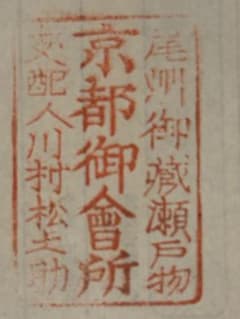 尾州御蔵瀬戸物
京都御會所
支配人川村松之助